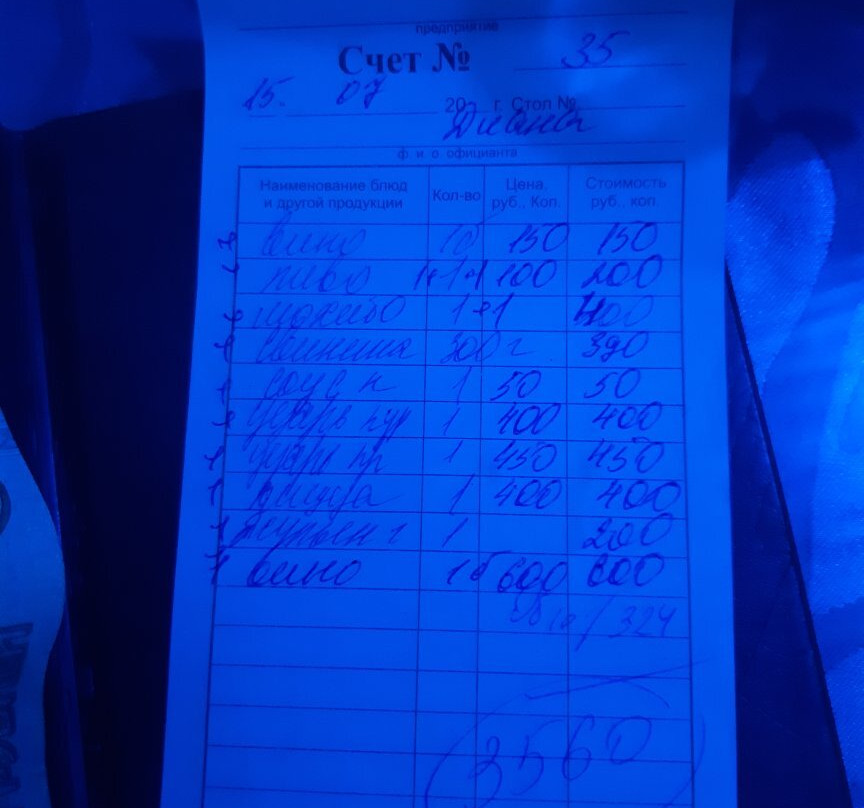 предприятие
Счет № 35
15. 07 20 г. Стол №
Диана
ф и о официанта
Наименование блюд и другой продукции Кол-во Цена, руб., Коп. Стоимость руб., коп.
вино 1б 150 150
пиво 1+1 100 200
мохито 1+1 400
свинина 300 г. 390
соус к 1 50 50
цезарь кур 1 400 400
цезарь кр 1 450 450
пицца 1 400 400
жульен г 1 200
вино 1б 600 600
10% 324
3560